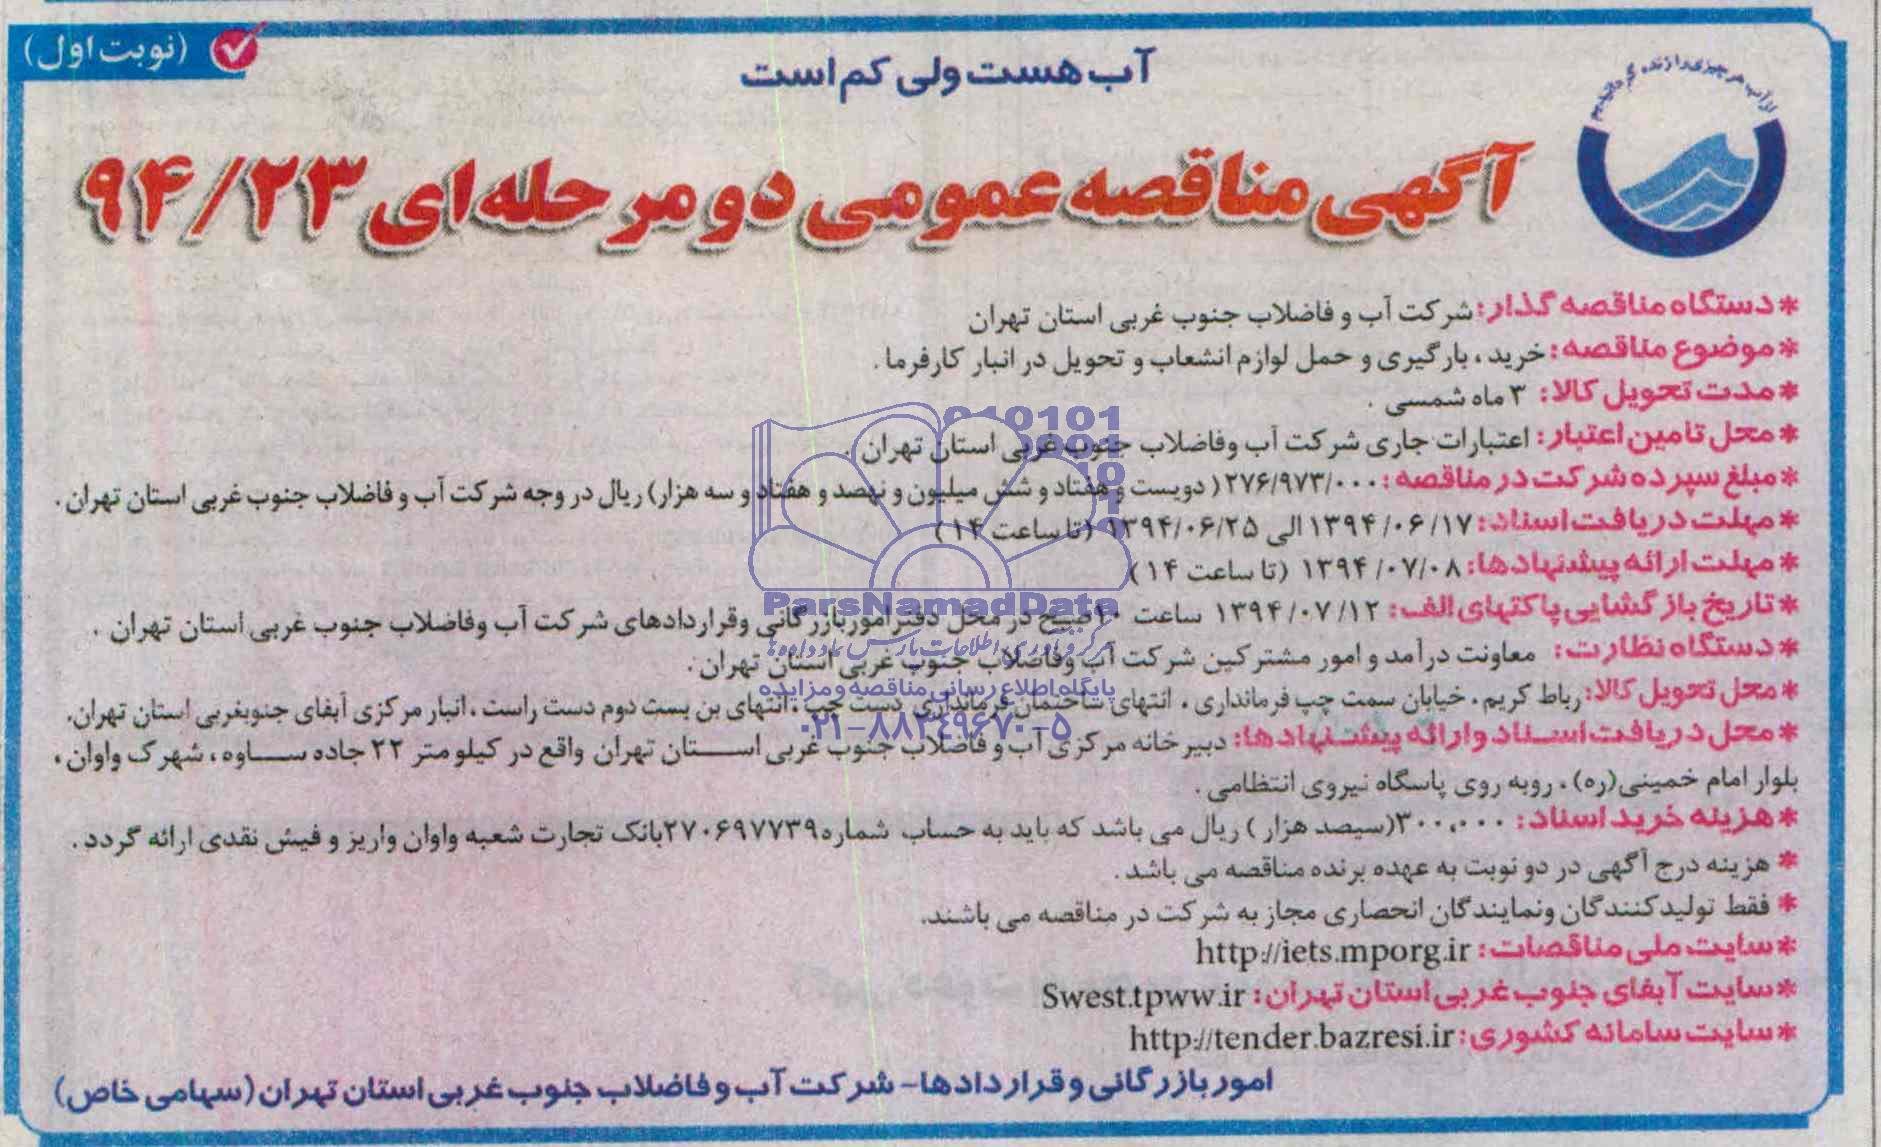 (نوبت اول)
از آب هر چیزی را زنده گردانیدیم
آب هست ولی کم است
آگهی مناقصه عمومی دو مرحله ای ۹۴/۲۳
* دستگاه مناقصه گذار: شرکت آب و فاضلاب جنوب غربی استان تهران
* موضوع مناقصه: خرید، بارگیری و حمل لوازم انشعاب و تحویل در انبار کارفرما.
* مدت تحویل کالا: ۳ ماه شمسی .
* محل تامین اعتبار: اعتبارات جاری شرکت آب وفاضلاب جنوب غربی استان تهران .
* مبلغ سپرده شرکت در مناقصه: ۲۷۶/۹۷۳/۰۰۰ (دویست و هفتاد و شش میلیون و نهصد و هفتاد و سه هزار) ریال در وجه شرکت آب و فاضلاب جنوب غربی استان تهران.
* مهلت دریافت اسناد: ۱۳۹۴/۰۶/۱۷ الی ۱۳۹۴/۰۶/۲۵ (تا ساعت ۱۴)
* مهلت ارائه پیشنهادها: ۱۳۹۴/۰۷/۰۸ (تا ساعت ۱۴)
* تاریخ بازگشایی پاکتهای الف: ۱۳۹۴/۰۷/۱۲ ساعت ۱۰ صبح در محل دفتر امور بازرگانی وقراردادهای شرکت آب وفاضلاب جنوب غربی استان تهران .
* دستگاه نظارت: معاونت درآمد و امور مشترکین شرکت آب وفاضلاب جنوب غربی استان تهران.
* محل تحویل کالا: رباط کریم، خیابان سمت چپ فرمانداری، انتهای ساختمان فرمانداری دست چپ، انتهای بن بست دوم دست راست، انبار مرکزی آبفای جنوبغربی استان تهران.
* محل دریافت اسناد و ارائه پیشنهادها: دبیرخانه مرکزی آب و فاضلاب جنوب غربی استان تهران واقع در کیلومتر ۲۲ جاده ساوه، شهرک واوان،
بلوار امام خمینی(ره)، روبه روی پاسگاه نیروی انتظامی.
* هزینه خرید اسناد: ۳۰۰،۰۰۰(سیصد هزار) ریال می باشد که باید به حساب شماره ۲۷۰۶۹۷۷۳۹ بانک تجارت شعبه واوان واریز و فیش نقدی ارائه گردد.
* هزینه درج آگهی در دو نوبت به عهده برنده مناقصه می باشد.
* فقط تولیدکنندگان ونمایندگان انحصاری مجاز به شرکت در مناقصه می باشند.
* سایت ملی مناقصات: http://iets.mporg.ir
* سایت آبفای جنوب غربی استان تهران: Swest.tpww.ir
* سایت سامانه کشوری: http://tender.bazresi.ir
امور بازرگانی و قراردادها- شرکت آب و فاضلاب جنوب غربی استان تهران (سهامی خاص)
ParsNamadData
مرکز فرآوری اطلاعات پارس نماد داده ها
پایگاه اطلاع رسانی مناقصه و مزایده
۰۲۱-۸۸۳۴۹۶۷۰-۵